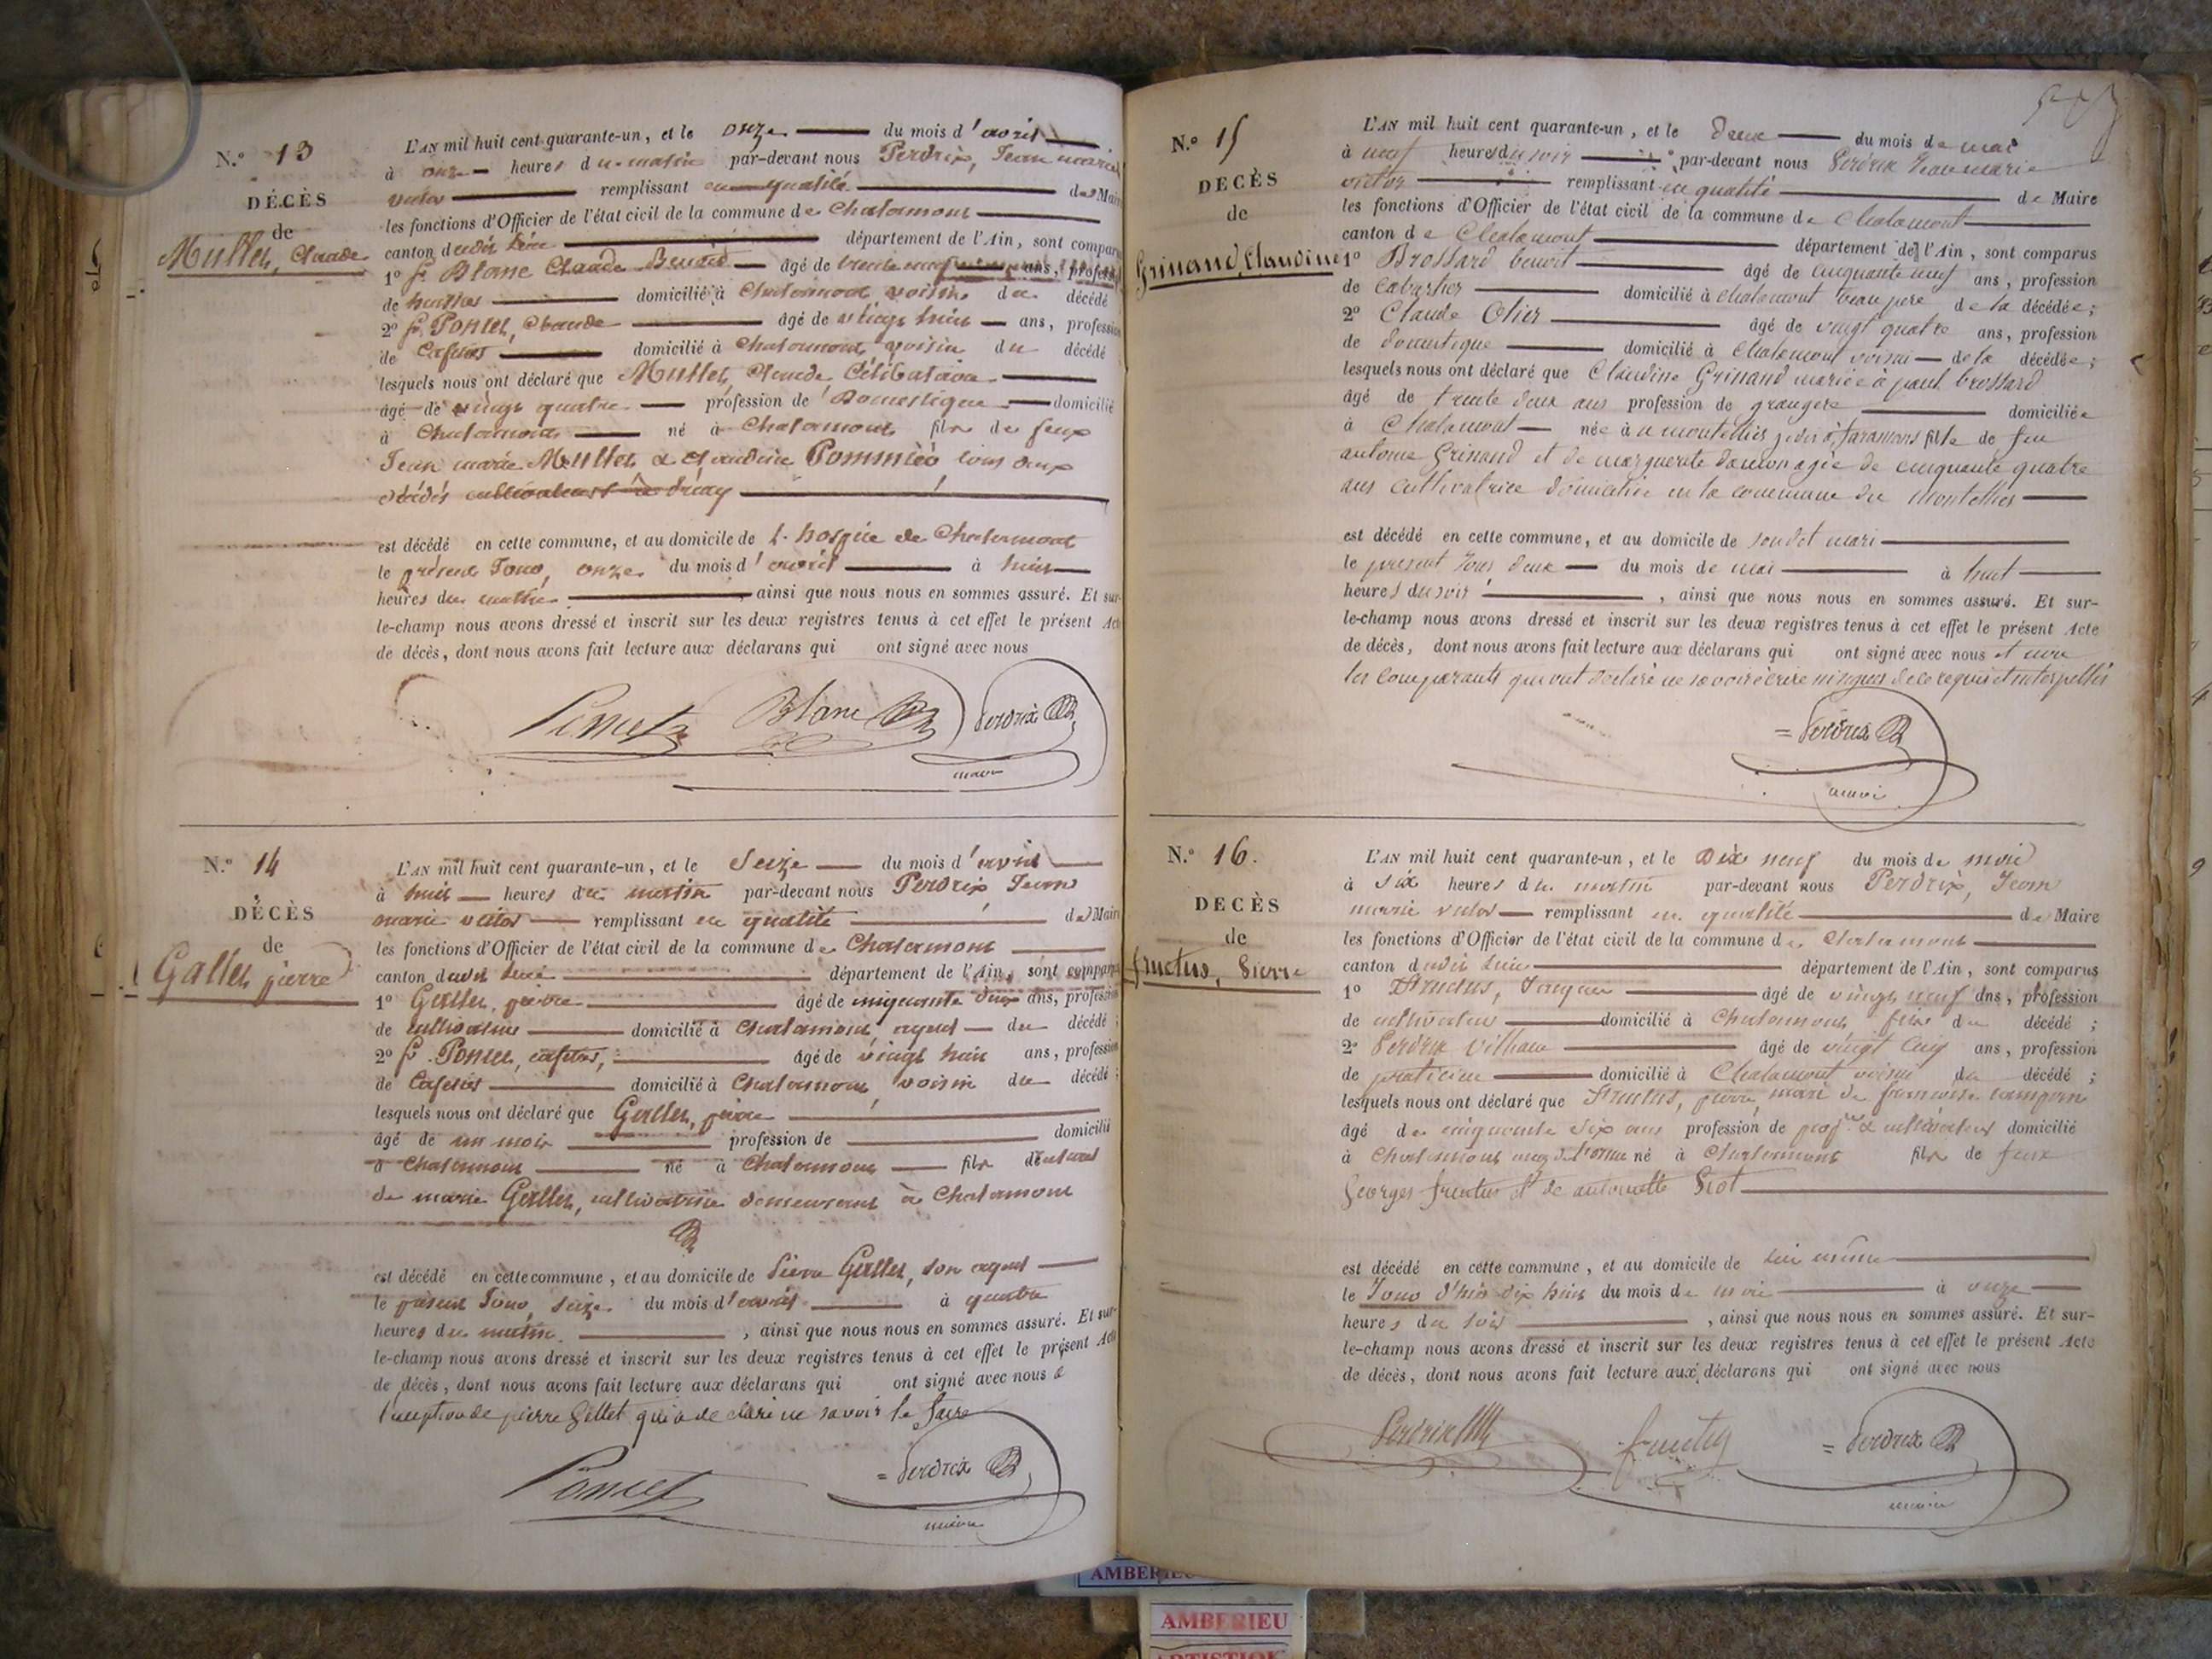 N.º 13
DÉCÈS
de
Mullet, Claude
L'AN mil huit cent quarante-un, et le onze du mois d'avril
à onze heures du matin par-devant nous Perdrix, Jean marie
victor remplissant en qualité de Maire
les fonctions d'Officier de l'état civil de la commune de Chalamont
canton dudit lieu département de l'Ain, sont comparus
1º Sr. Blanc Claude Benoit âgé de trente neuf ans, profession
de huissier domicilié à Chalamont voisin du décédé
2º Sr. Poncet, Claude âgé de vingt huit ans, profession
de Cafetier domicilié à Chalamont, voisin du décédé
lesquels nous ont déclaré que Mullet, Claude Célibataire
âgé de vingt quatre profession de Domestique domicilié
à Chalamont né à Chalamont fils de feux
Jean marie Mullet & Claudine Pommiéô tous deux
décédés cultivateurs à
est décédé en cette commune, et au domicile de l'hospice de Chalamont
le présent Jour, onze du mois d'avril à huit
heures du matin, ainsi que nous nous en sommes assuré. Et sur-
le-champ nous avons dressé et inscrit sur les deux registres tenus à cet effet le présent Acte
de décès, dont nous avons fait lecture aux déclarans qui ont signé avec nous
Poncet Blanc Perdrix
maire
N.º 14
DÉCÈS
de
Gallet, pierre
L'AN mil huit cent quarante-un, et le Seize du mois d'avril
à huit heures du matin par-devant nous Perdrix Jean
marie victor remplissant en qualité de Maire
les fonctions d'Officier de l'état civil de la commune de Chalamont
canton dudit lieu département de l'Ain, sont comparus
1º Gallet, pierre âgé de cinquante deux ans, profession
de cultivateur domicilié à Chalamont, ayeul du décédé ;
2º Sr. Poncet, cafetier, âgé de vingt huit ans, profession
de Cafetier domicilié à Chalamont, voisin du décédé ;
lesquels nous ont déclaré que Gallet, pierre
âgé de un mois profession de domicilié
à Chalamont né à Chalamont fils naturel
de marie Gallet, cultivatrice demeurant à Chalamont
est décédé en cette commune, et au domicile de Pierre Gallet, son ayeul
le présent Jour, seize du mois d'avril à quatre
heures du matin, ainsi que nous nous en sommes assuré. Et sur-
le-champ nous avons dressé et inscrit sur les deux registres tenus à cet effet le présent Acte
de décès, dont nous avons fait lecture aux déclarans qui ont signé avec nous à
l'exception de pierre Gallet qui a déclaré ne savoir le faire
Poncet = Perdrix
maire
N.º 15
DECÈS
de
Grinand, Claudine
L'AN mil huit cent quarante-un, et le deux du mois de mai
à neuf heures du soir par-devant nous Perdrix Jean marie
victor remplissant en qualité de Maire
les fonctions d'Officier de l'état civil de la commune de Chalamont
canton de Chalamont département de l'Ain, sont comparus
1º Brossard benoit âgé de cinquante neuf ans, profession
de Cabartier domicilié à Chalamont beau pere de la décédée ;
2º Claude Olier âgé de vingt quatre ans, profession
de domestique domicilié à Chalamont voisin de la décédée ;
lesquels nous ont déclaré que Claudine Grinand mariée à paul brossard
âgé de trente deux ans profession de grangere domiciliée
à Chalamont née à montellier fille de feu
antoine Grinand et de marguerite agée de cinquante quatre
ans cultivatrice domiciliée en la commune du montellier
est décédé en cette commune, et au domicile de son dit mari
le present Jour deux du mois de mai à huit
heures du soir, ainsi que nous nous en sommes assuré. Et sur-
le-champ nous avons dressé et inscrit sur les deux registres tenus à cet effet le présent Acte
de décès, dont nous avons fait lecture aux déclarans qui ont signé avec nous et non
les comparants qui ont déclaré ne savoir écrire ni signer de ce requis et interpellés
= Perdrix
maire
N.º 16.
DECÈS
de
fructus, Pierre
L'AN mil huit cent quarante-un, et le Dix neuf du mois de mai
à six heures du matin par-devant nous Perdrix, Jean
marie victor remplissant en qualité de Maire
les fonctions d'Officier de l'état civil de la commune de Chalamont
canton dudit lieu département de l'Ain, sont comparus
1º Fructus, Jacques âgé de vingt neuf ans, profession
de cultivateur domicilié à Chalamont, fils du décédé ;
2º Perdrix Villiam âgé de vingt cinq ans, profession
de praticien domicilié à Chalamont voisin du décédé ;
lesquels nous ont déclaré que Fructus, pierre, mari de francoise
âgé de cinquante six ans profession de prop.re & cultivateur domicilié
à Chalamont né à Chalamont fils de feux
Georges fructus et de antoinette Giot
est décédé en cette commune, et au domicile de lui même
le Jour d'hier dix huit du mois de mai à onze
heures du soir, ainsi que nous nous en sommes assuré. Et sur-
le-champ nous avons dressé et inscrit sur les deux registres tenus à cet effet le présent Acte
de décès, dont nous avons fait lecture aux déclarans qui ont signé avec nous
Perdrix fructus = Perdrix
maire
AMBERIEU
AMBERIEU